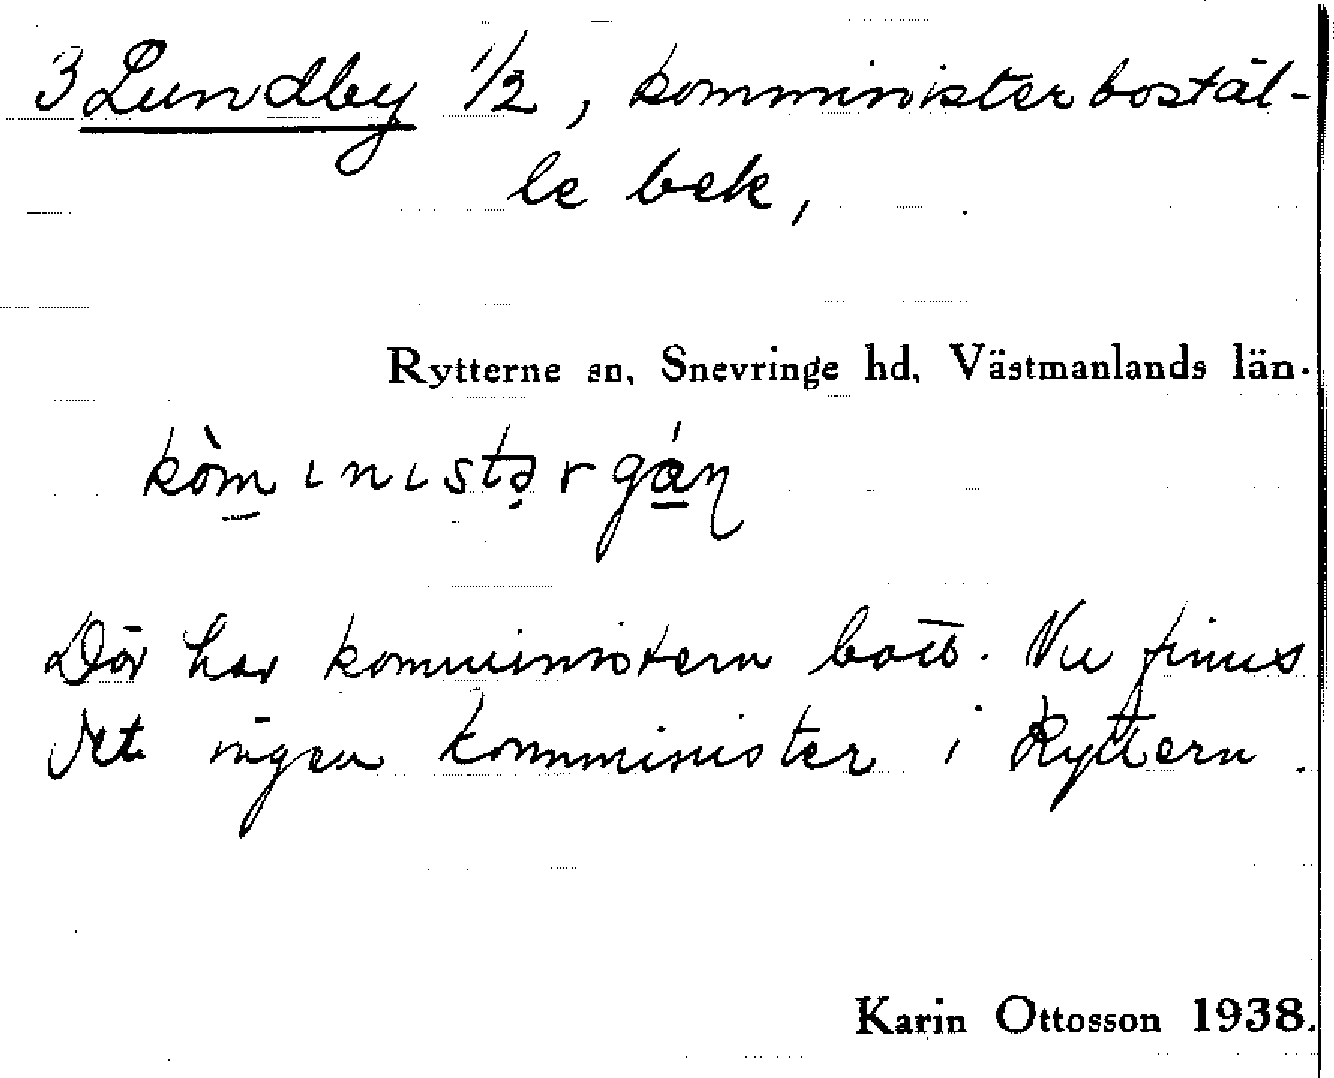 3 Lundby 1/2, komministerbostäl-
le bek,
Rytterne sn, Snevringe hd, Västmanlands län.
kòm̱ınıstə̣rgá̱ɳ
Där har komministern bott. Nu finns
det ingen komminister i Ryttern.
Karin Ottosson 1938.